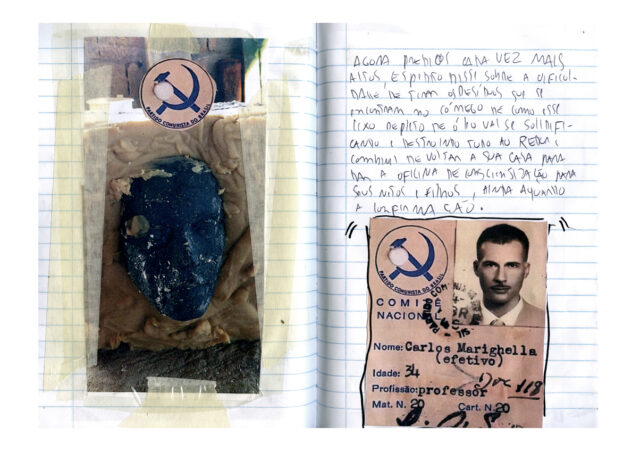 PARTIDO COMUNISTA DO BRASIL
AGORA PREDIOS CADA VEZ MAIS
ALTOS, DISSE SOBRE A DIFICUL-
DADE DE TIRAR OS RESÍDUOS QUE SE
ENCONTRAM NO CÓRREGO DE COMO ESSE
LIXO REPLETO DE ÓLEO VAI SE SOLIDIFI-
CANDO E DESTRUINDO TUDO AO REDOR,
COMBINEI DE VOLTAR A SUA CASA PARA
DAR A OFICINA DE CONSCIENTIZAÇÃO PARA
SEUS NETOS E FILHOS, AINDA AGUARDO
A CONFIRMAÇÃO.
PARTIDO COMUNISTA DO BRASIL
COMITÊ
NACIONAL
Nome: Carlos Marighella
(efetivo)
Idade: 34
Profissão: professor
Mat. N. 20 Cart. N. 20